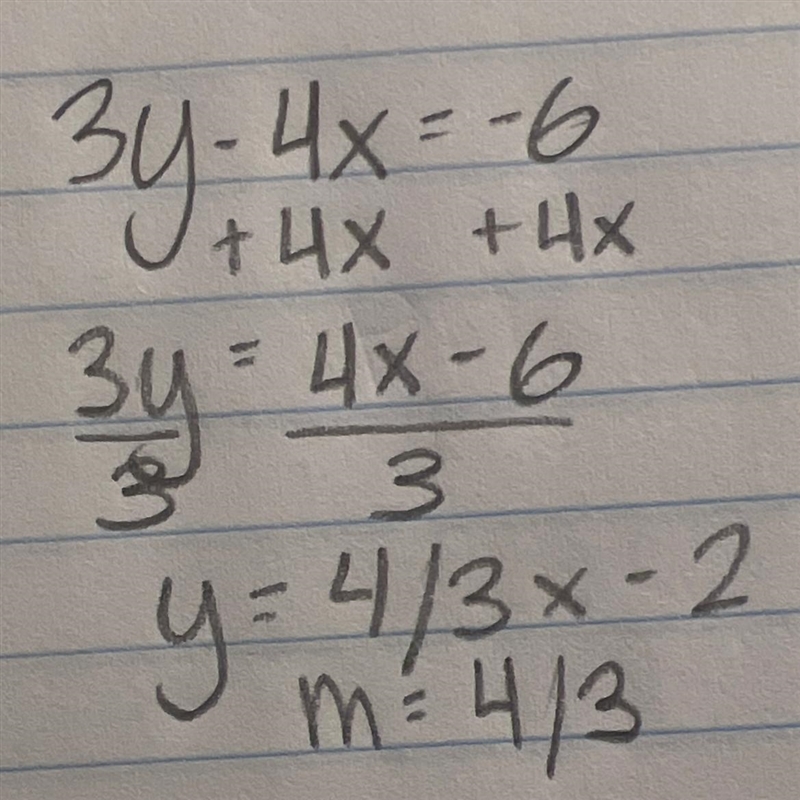 3y - 4x = -6
+ 4x + 4x
3y = 4x - 6
3 3
y = 4/3 x - 2
m = 4/3